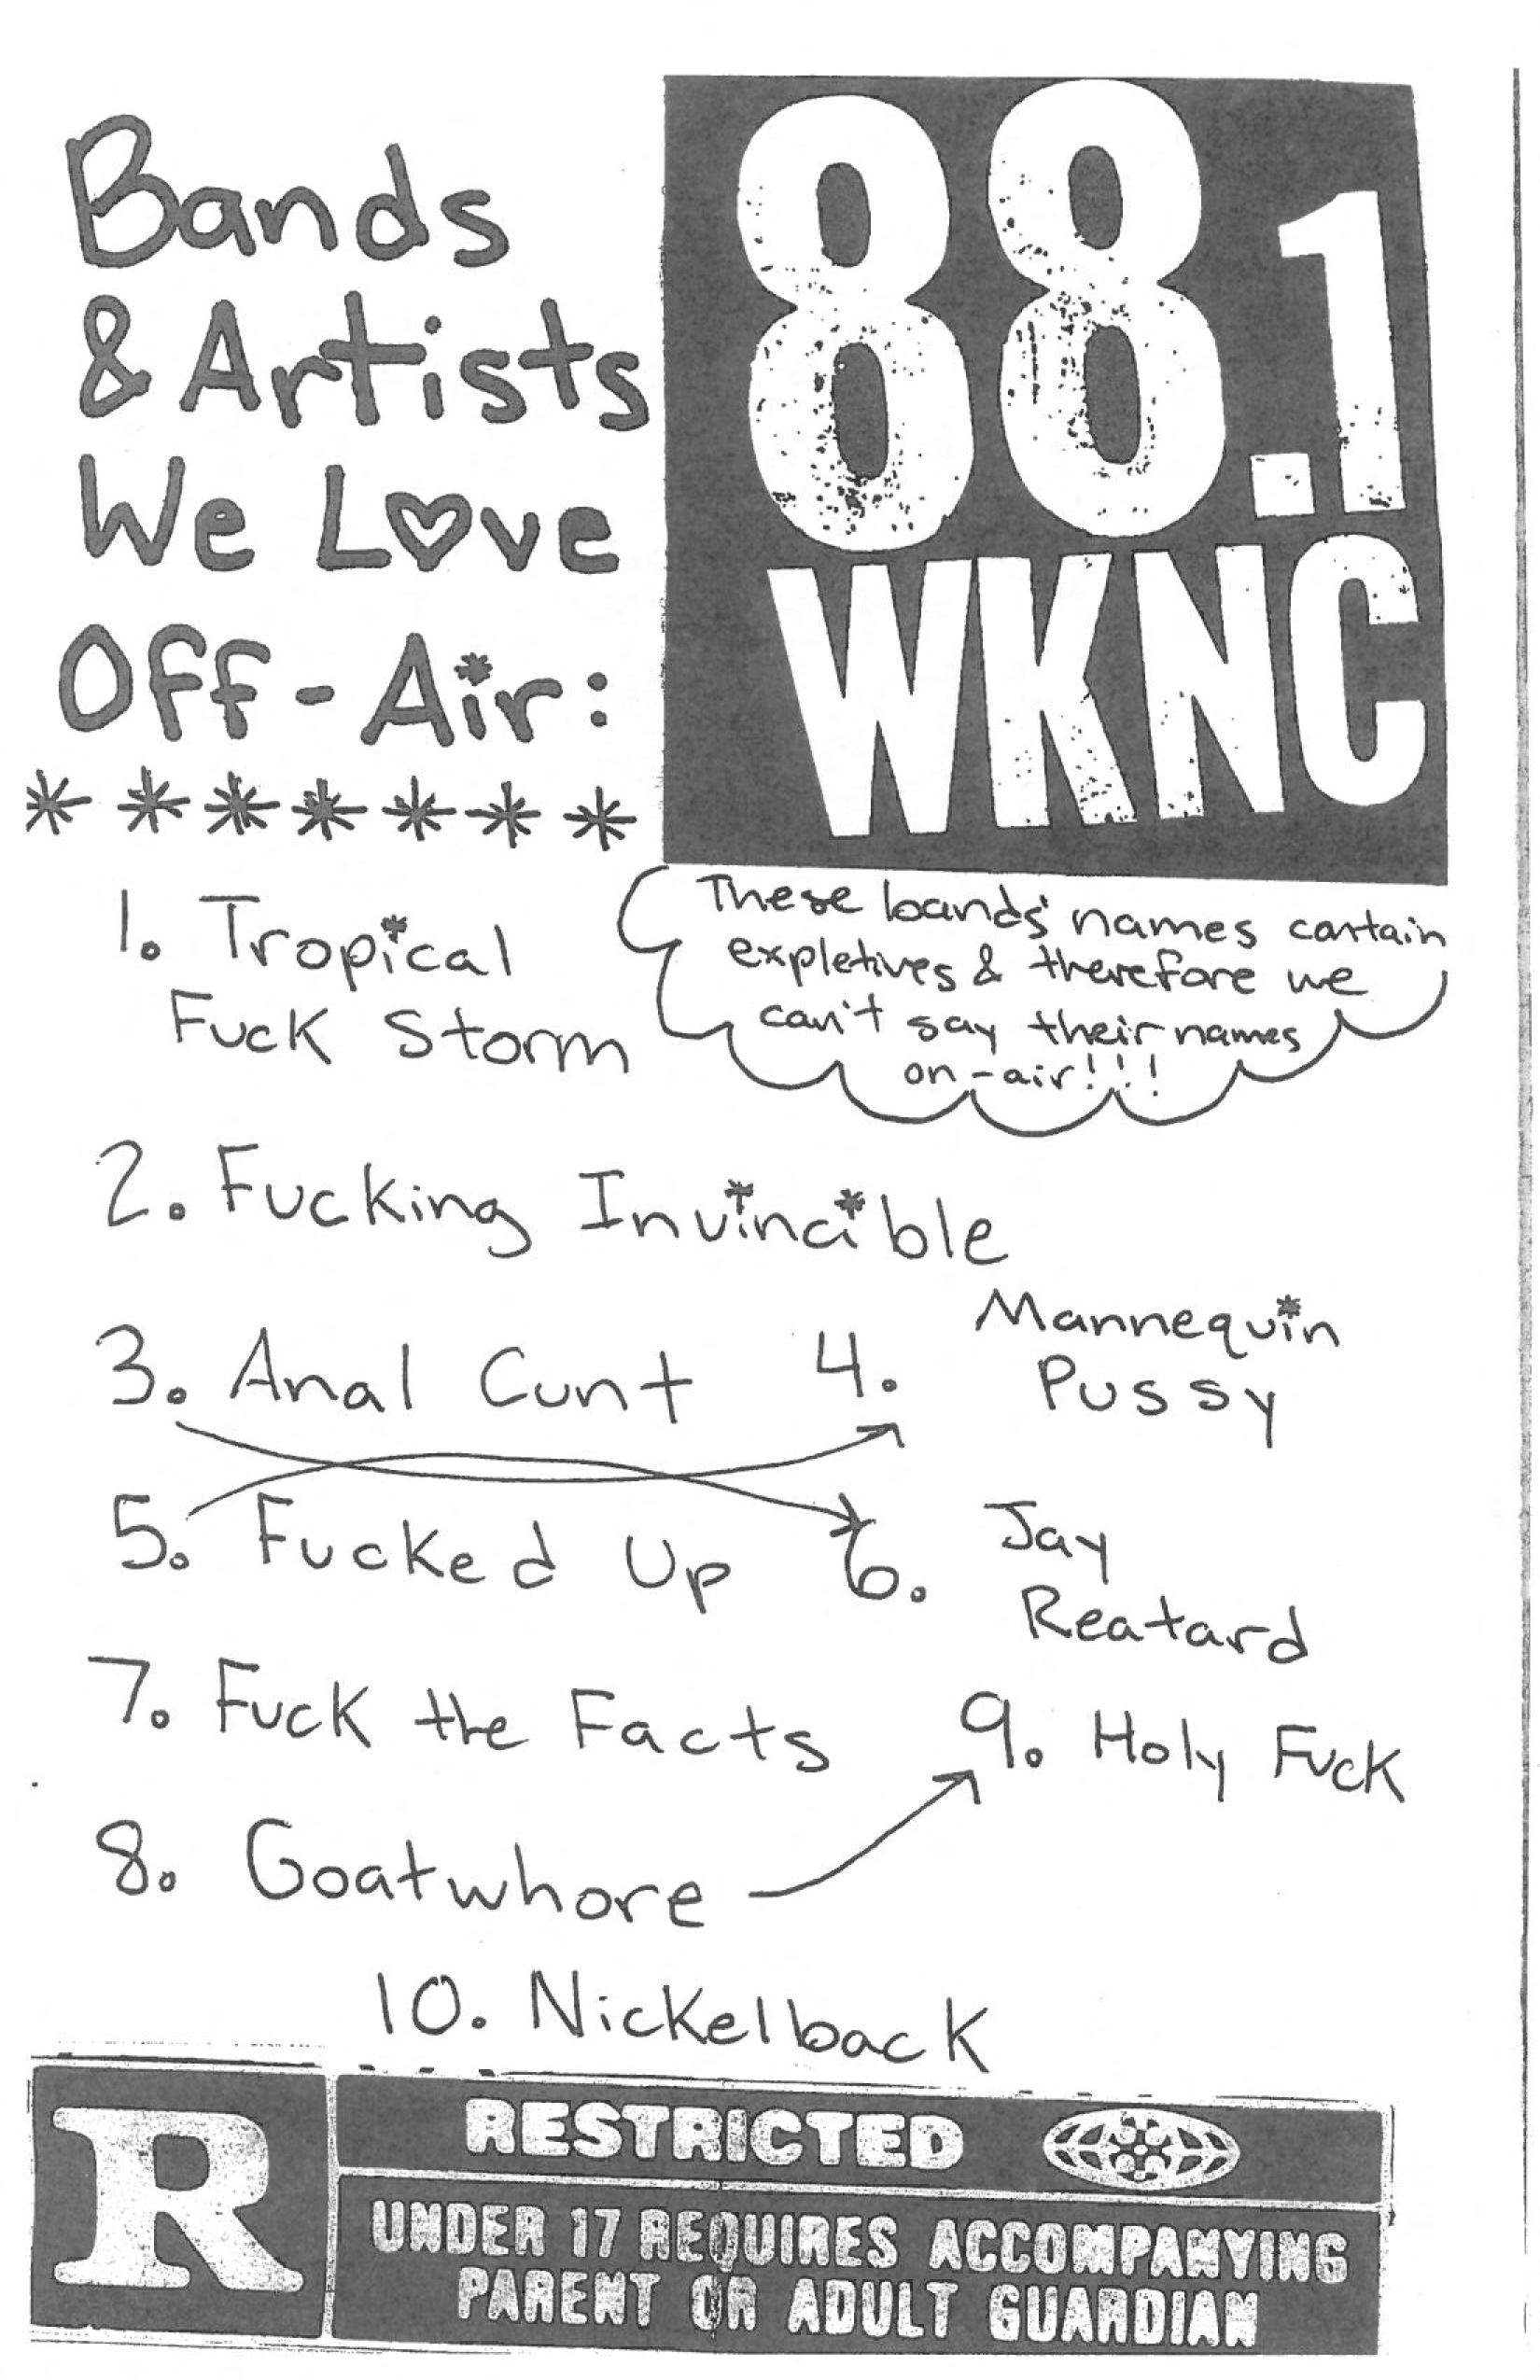 Bands
& Artists
We Love
Off-Air:
*******
88.1
WKNC
These bands' names contain
expletives & therefore we
can't say their names
on-air!!!
1. Tropical
Fuck Storm
2. Fucking Invincible
3. Anal Cunt
4. Mannequin
Pussy
5. Fucked Up
6. Jay
Reatard
7. Fuck the Facts
8. Goatwhore
9. Holy Fuck
10. Nickelback
R
RESTRICTED
UNDER 17 REQUIRES ACCOMPANYING
PARENT OR ADULT GUARDIAN